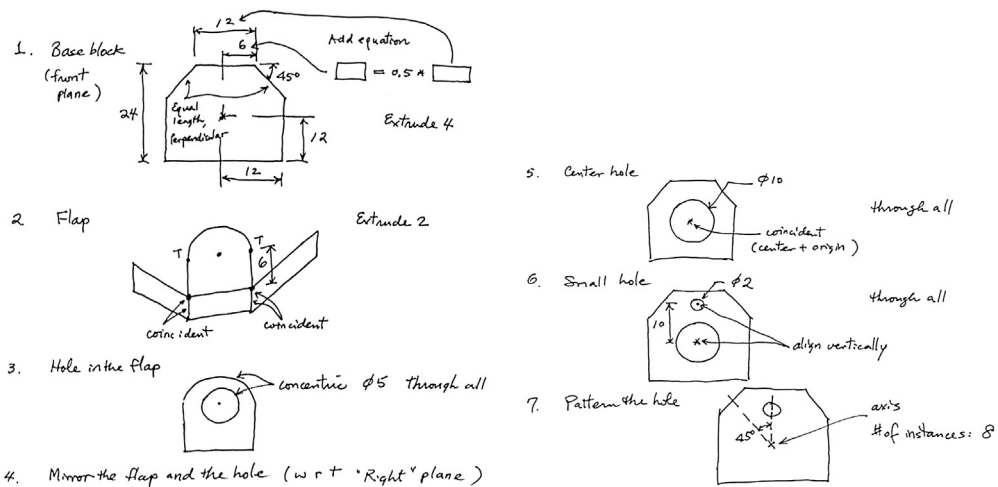 1. Base block
(front
plane)
12
6
45°
24
Equal
length,
perpendicular
12
12
Add equation
= 0.5 *
Extrude 4
2 Flap
Extrude 2
T
T
6
coincident
coincident
3. Hole in the flap
concentric ϕ5 through all
4. Mirror the flap and the hole (w r t "Right" plane)
5. Center hole
ϕ10
through all
coincident
(center + origin)
6. Small hole
ϕ2
through all
10
align vertically
7. Pattern the hole
45°
axis
# of instances: 8